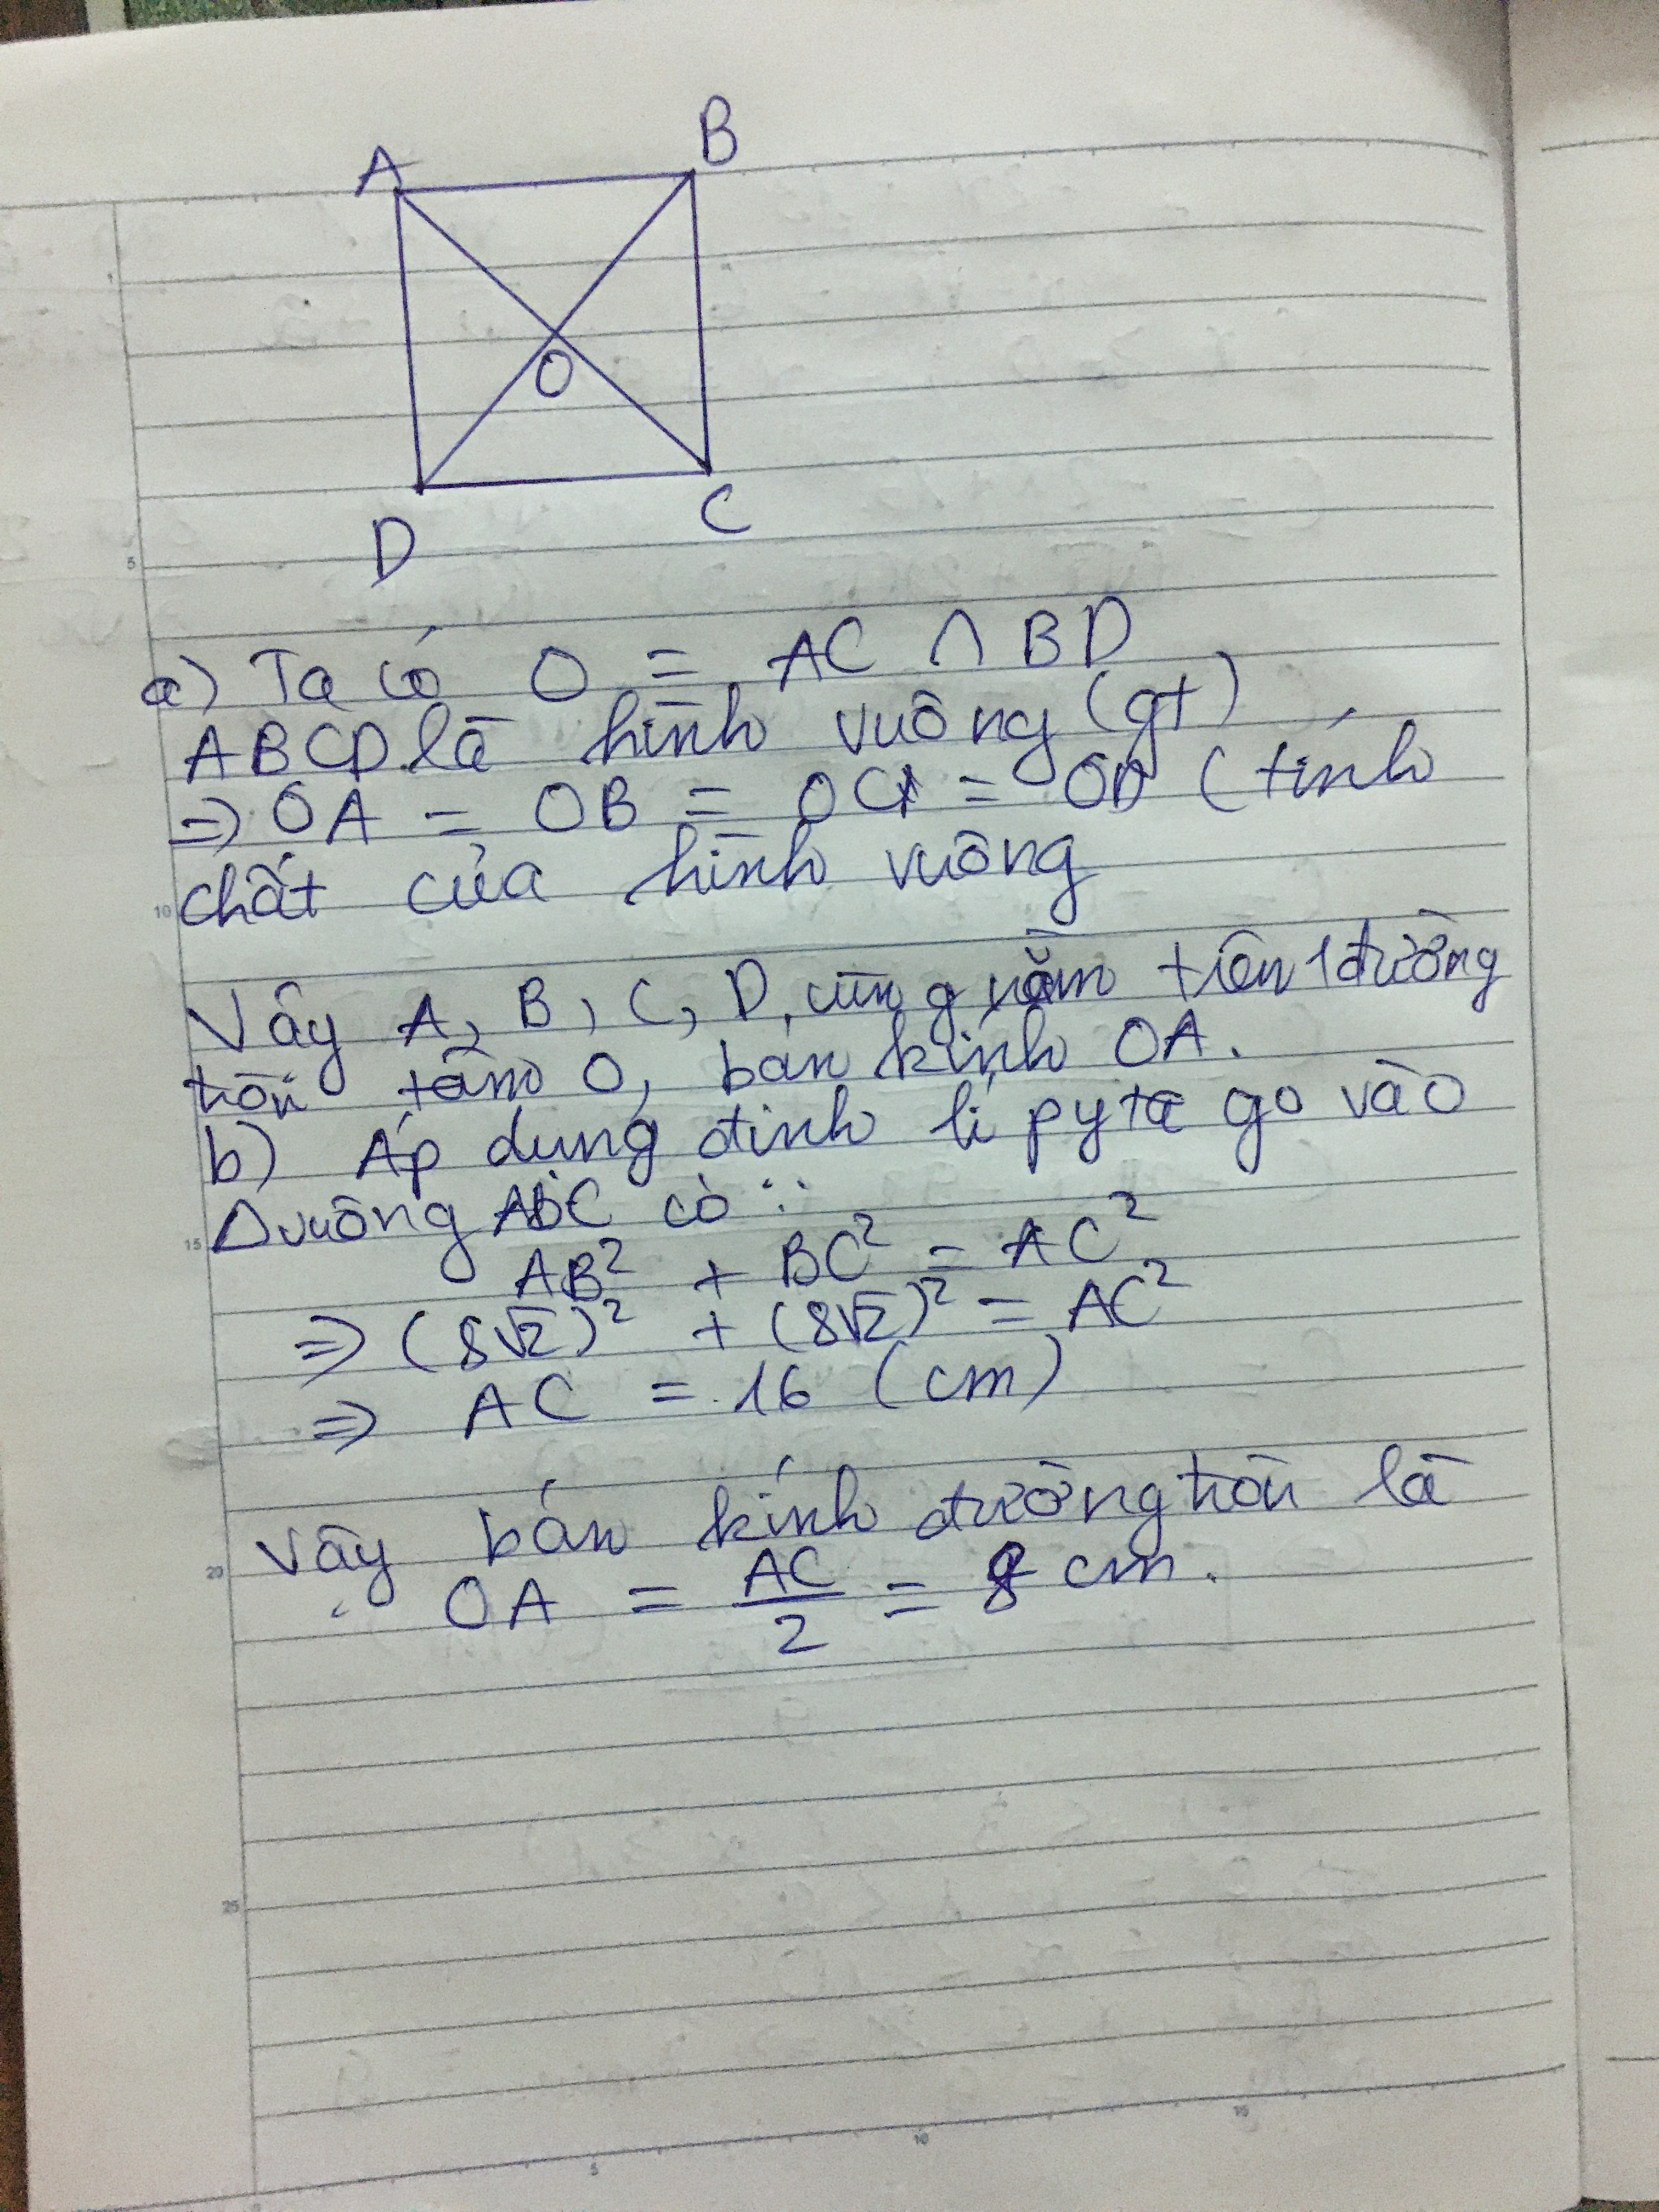 A
B
O
D
C
a) Ta có O = AC ∩ BD
ABCD là hình vuông (gt)
=> OA = OB = OC = OD (tính
chất của hình vuông
Vậy A, B, C, D, cùng nằm trên 1 đường
tròn tâm O, bán kính OA.
b) Áp dụng định lí pytago vào
Δ vuông ABC có:
AB² + BC² = AC²
=> (8√2)² + (8√2)² = AC²
=> AC = 16 (cm)
Vậy bán kính đường tròn là
OA = AC/2 = 8 cm.
5
10
15
20
25
5
10
15